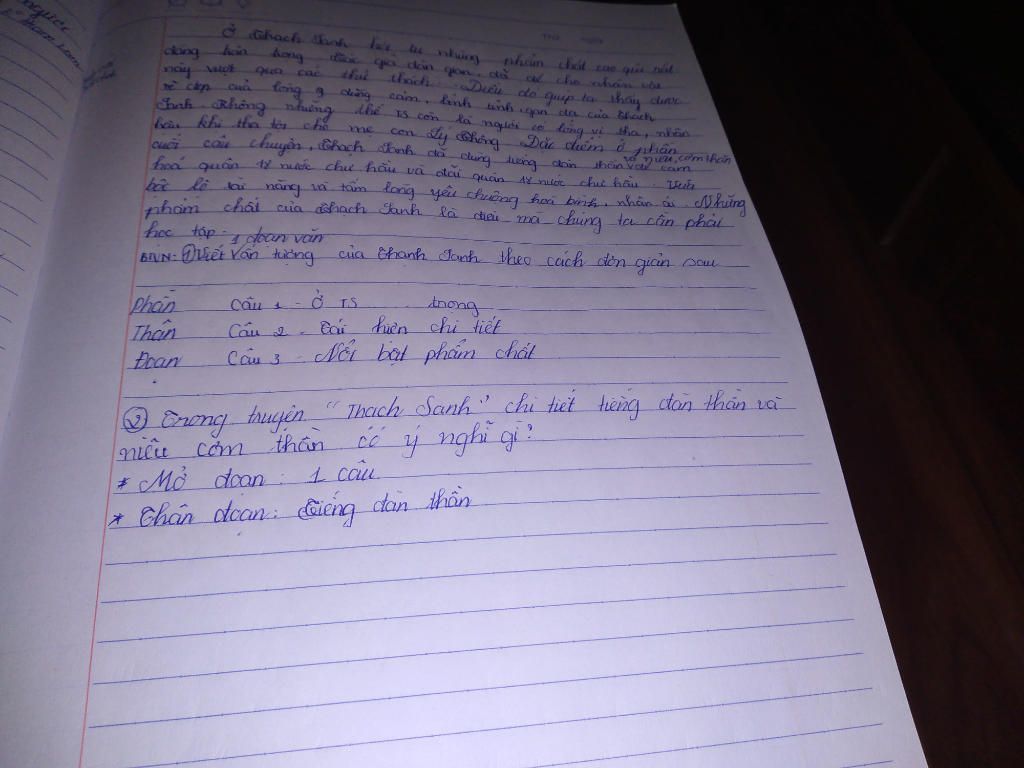 người
Ở Thạch Sanh hội tụ những phẩm chất cao quí rất
đáng trân trọng. Được gia dân gian, đã để cho nhân vật
này vượt qua các thử thách. Điều đó giúp ta thấy được
vẻ đẹp của lòng dũng cảm, bình tĩnh, gan dạ của Thạch
Sanh. Không những thế TS còn là người có lòng vị tha, nhân
hậu khi tha tội cho mẹ con Lý Thông. Đặc điểm ở phần
cuối câu chuyện, Thạch Sanh đã dùng tiếng đàn thần và niêu cơm thần
hoá quân 18 nước chư hầu và đãi quân 18 nước chư hầu.
bộc lộ tài năng và tấm lòng yêu chuộng hoà bình, nhân ái. Những
phẩm chất của Thạch Sanh là điều mà chúng ta cần phải
học tập.
1 đoạn văn
BTVN: ① Viết Vấn tượng của Thanh Sanh theo cách đơn giản sau
Phần Câu 1 - Ở TS trong
Thân Câu 2 - Tái hiện chi tiết
Đoạn Câu 3 - Nổi bật phẩm chất
② Trong truyện "Thạch Sanh" chi tiết tiếng đàn thần và
niêu cơm thần có ý nghĩ gì?
* Mở đoạn: 1 câu
* Thân đoạn: Tiếng đàn thần